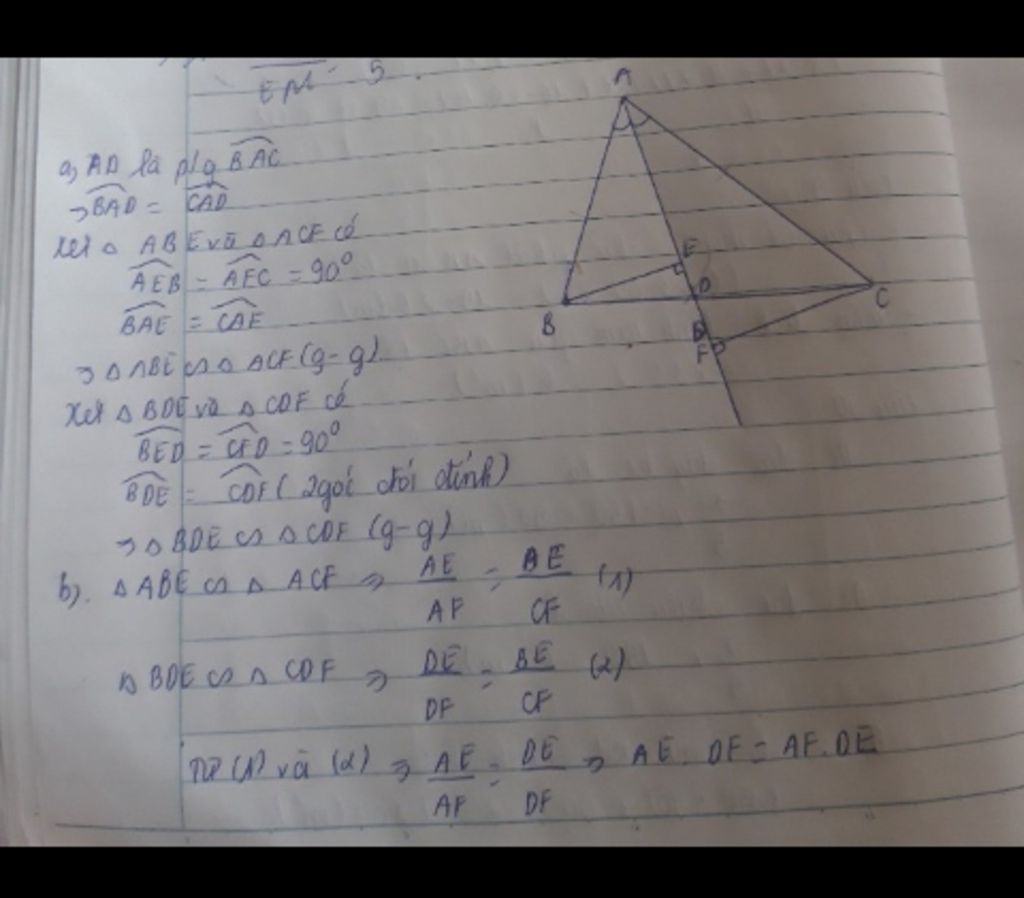 EM 5
a, AD là p/g B̂AC
→ B̂AD = ĈAD
Xét △ ABE và △ ACF có
ÂEB = ÂFC = 90⁰
B̂AE = ĈAF
→ △ ABE ∽ △ ACF (g-g)
Xét △ BDE và △ CDF có
B̂ED = ĈFD = 90⁰
B̂DE = ĈDF (2 góc đối đỉnh)
→ △ BDE ∽ △ CDF (g-g)
b). △ ABE ∽ △ ACF ⇒ AE/AF = BE/CF (1)
△ BDE ∽ △ CDF ⇒ DE/DF = BE/CF (2)
Từ (1) và (2) ⇒ AE/AF = DE/DF ⇒ AE. DF = AF. DE
A
E
D
B
C
F